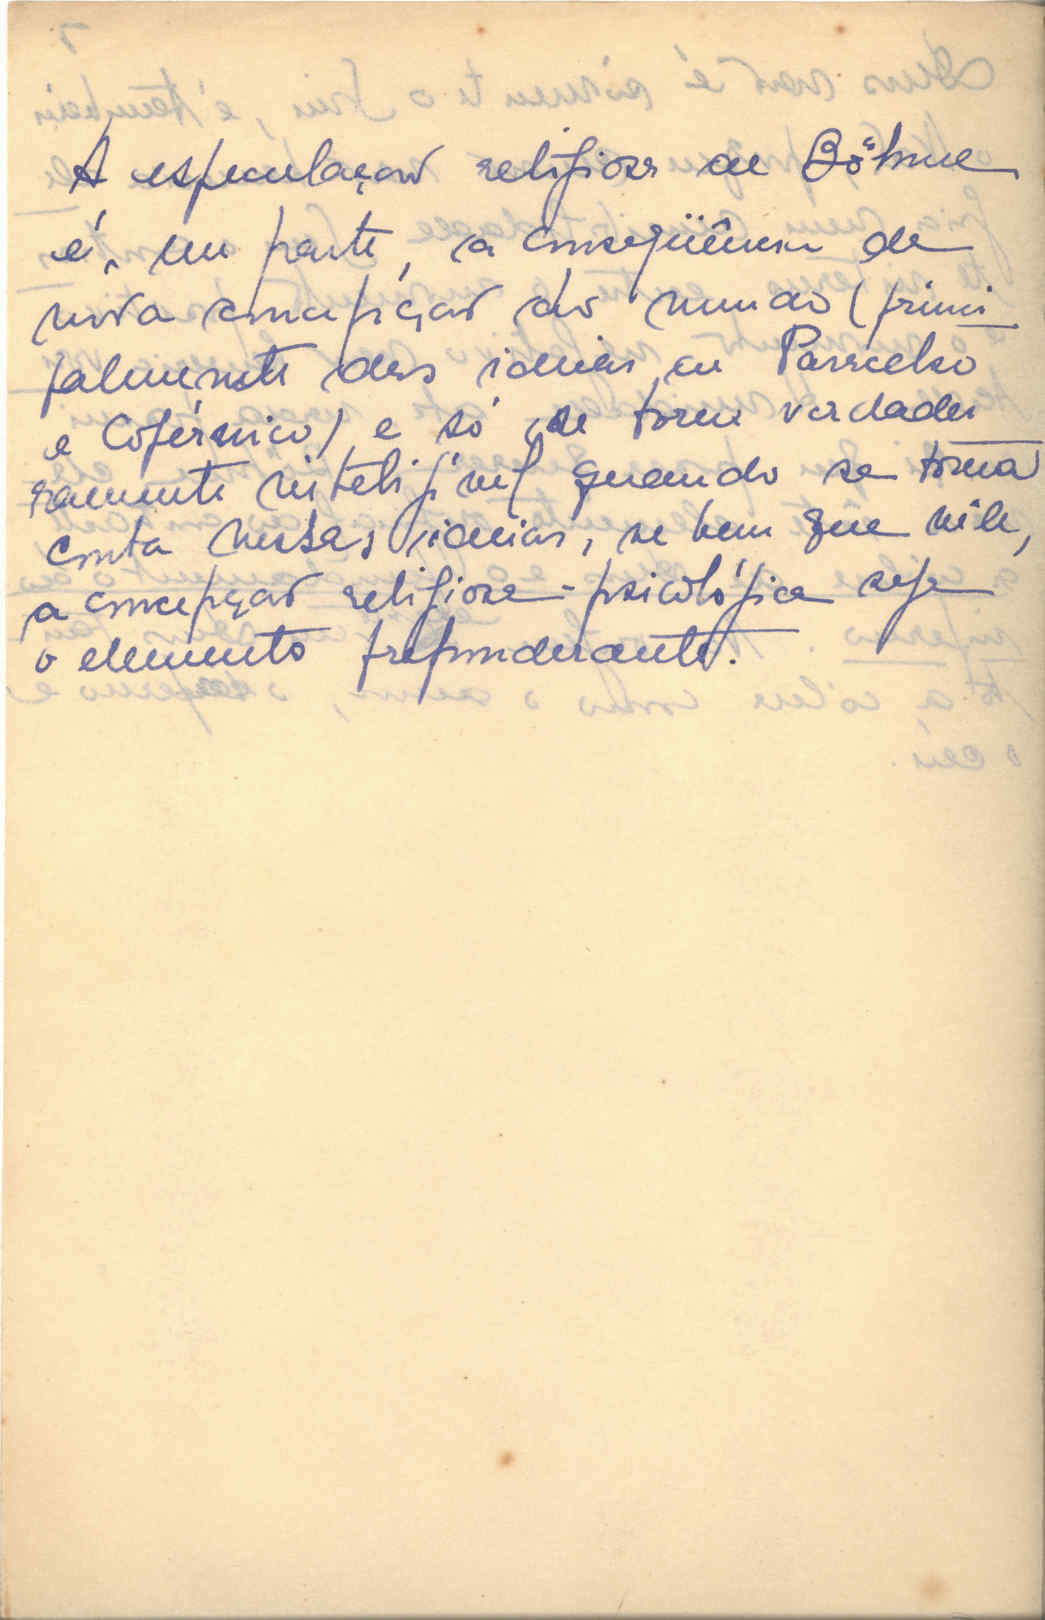 A especulação religiosa de Böhme
é, em parte, a conseqüência da
nova concepção do mundo (princi
palmente das idéias de Paracelso
e Copérnico) e só se torna verdadei
ramente inteligível quando se toma
conta nessas idéias, se bem que nêle,
a concepção religiosa-psicológica seja
o elemento preponderante.